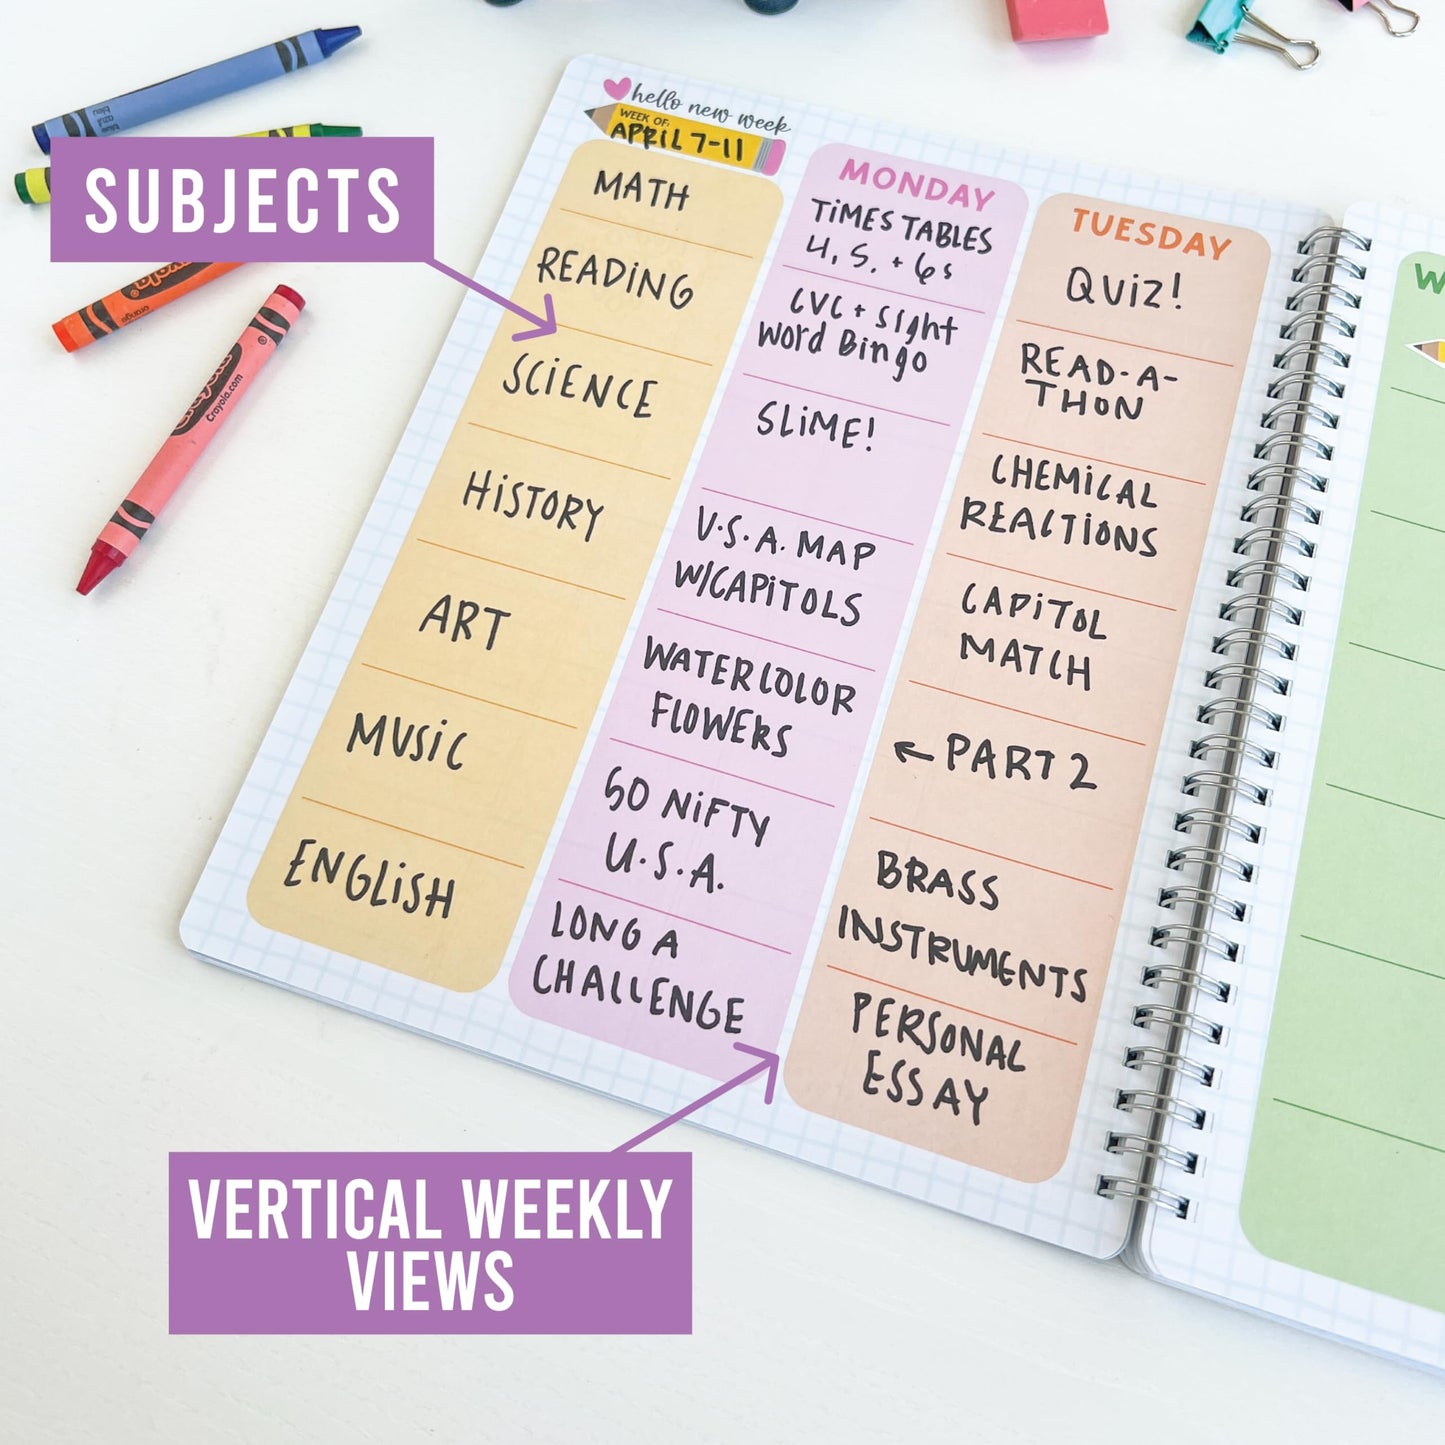 SUBJECTS
hello new week
WEEK OF:
APRIL 7-11
MATH
READING
SCIENCE
HISTORY
ART
MUSIC
ENGLISH
MONDAY
TIMES TABLES
4, 5, + 6s
CVC + Sight
Word Bingo
SLIME!
U.S.A. MAP
W/CAPITOLS
WATERCOLOR
FLOWERS
50 NIFTY
U.S.A.
LONG A
CHALLENGE
TUESDAY
QUIZ!
READ-A-
THON
CHEMICAL
REACTIONS
CAPITOL
MATCH
← PART 2
BRASS
INSTRUMENTS
PERSONAL
ESSAY
W
VERTICAL WEEKLY
VIEWS
Crayola.com
orange
bleu
azul
blue